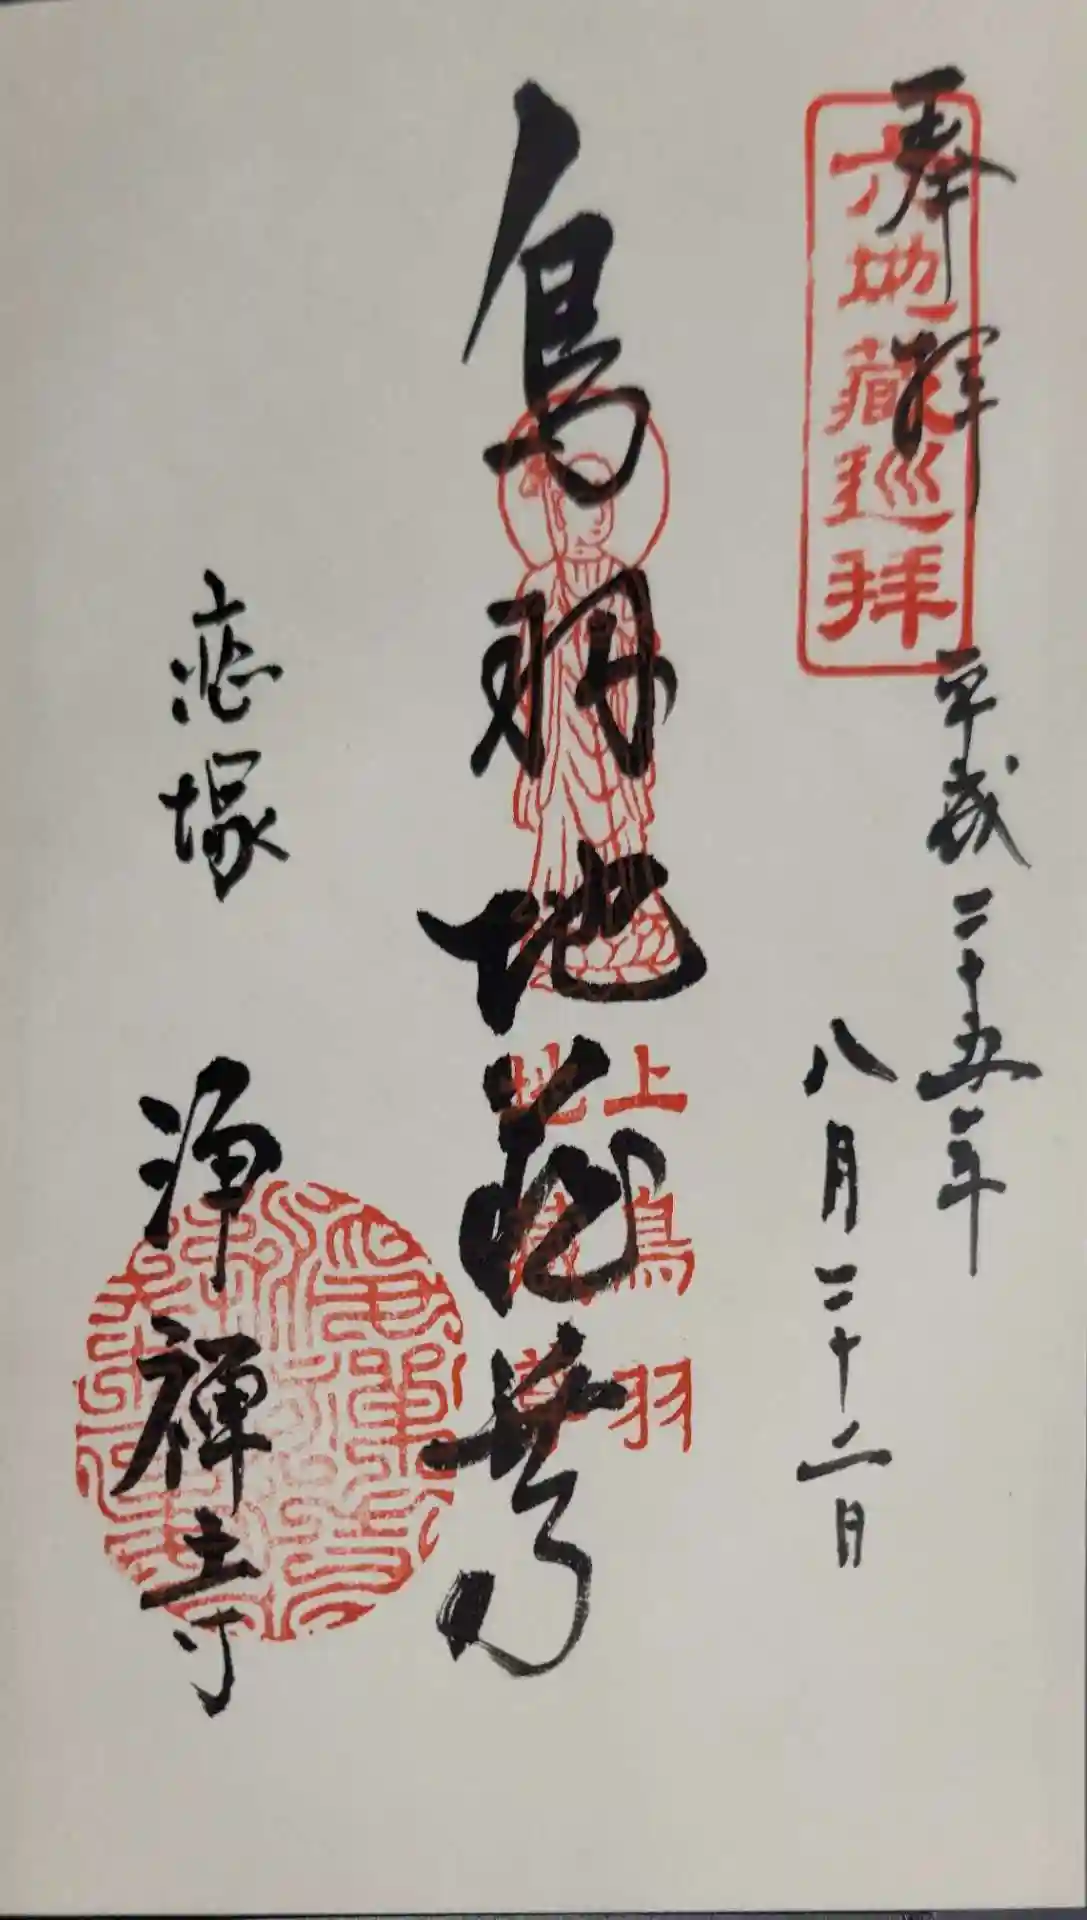 奉拝
六地蔵巡拝
平成二十五年
八月二十二日
鳥羽地蔵尊
上鳥羽
地蔵尊
恋塚
浄禅寺